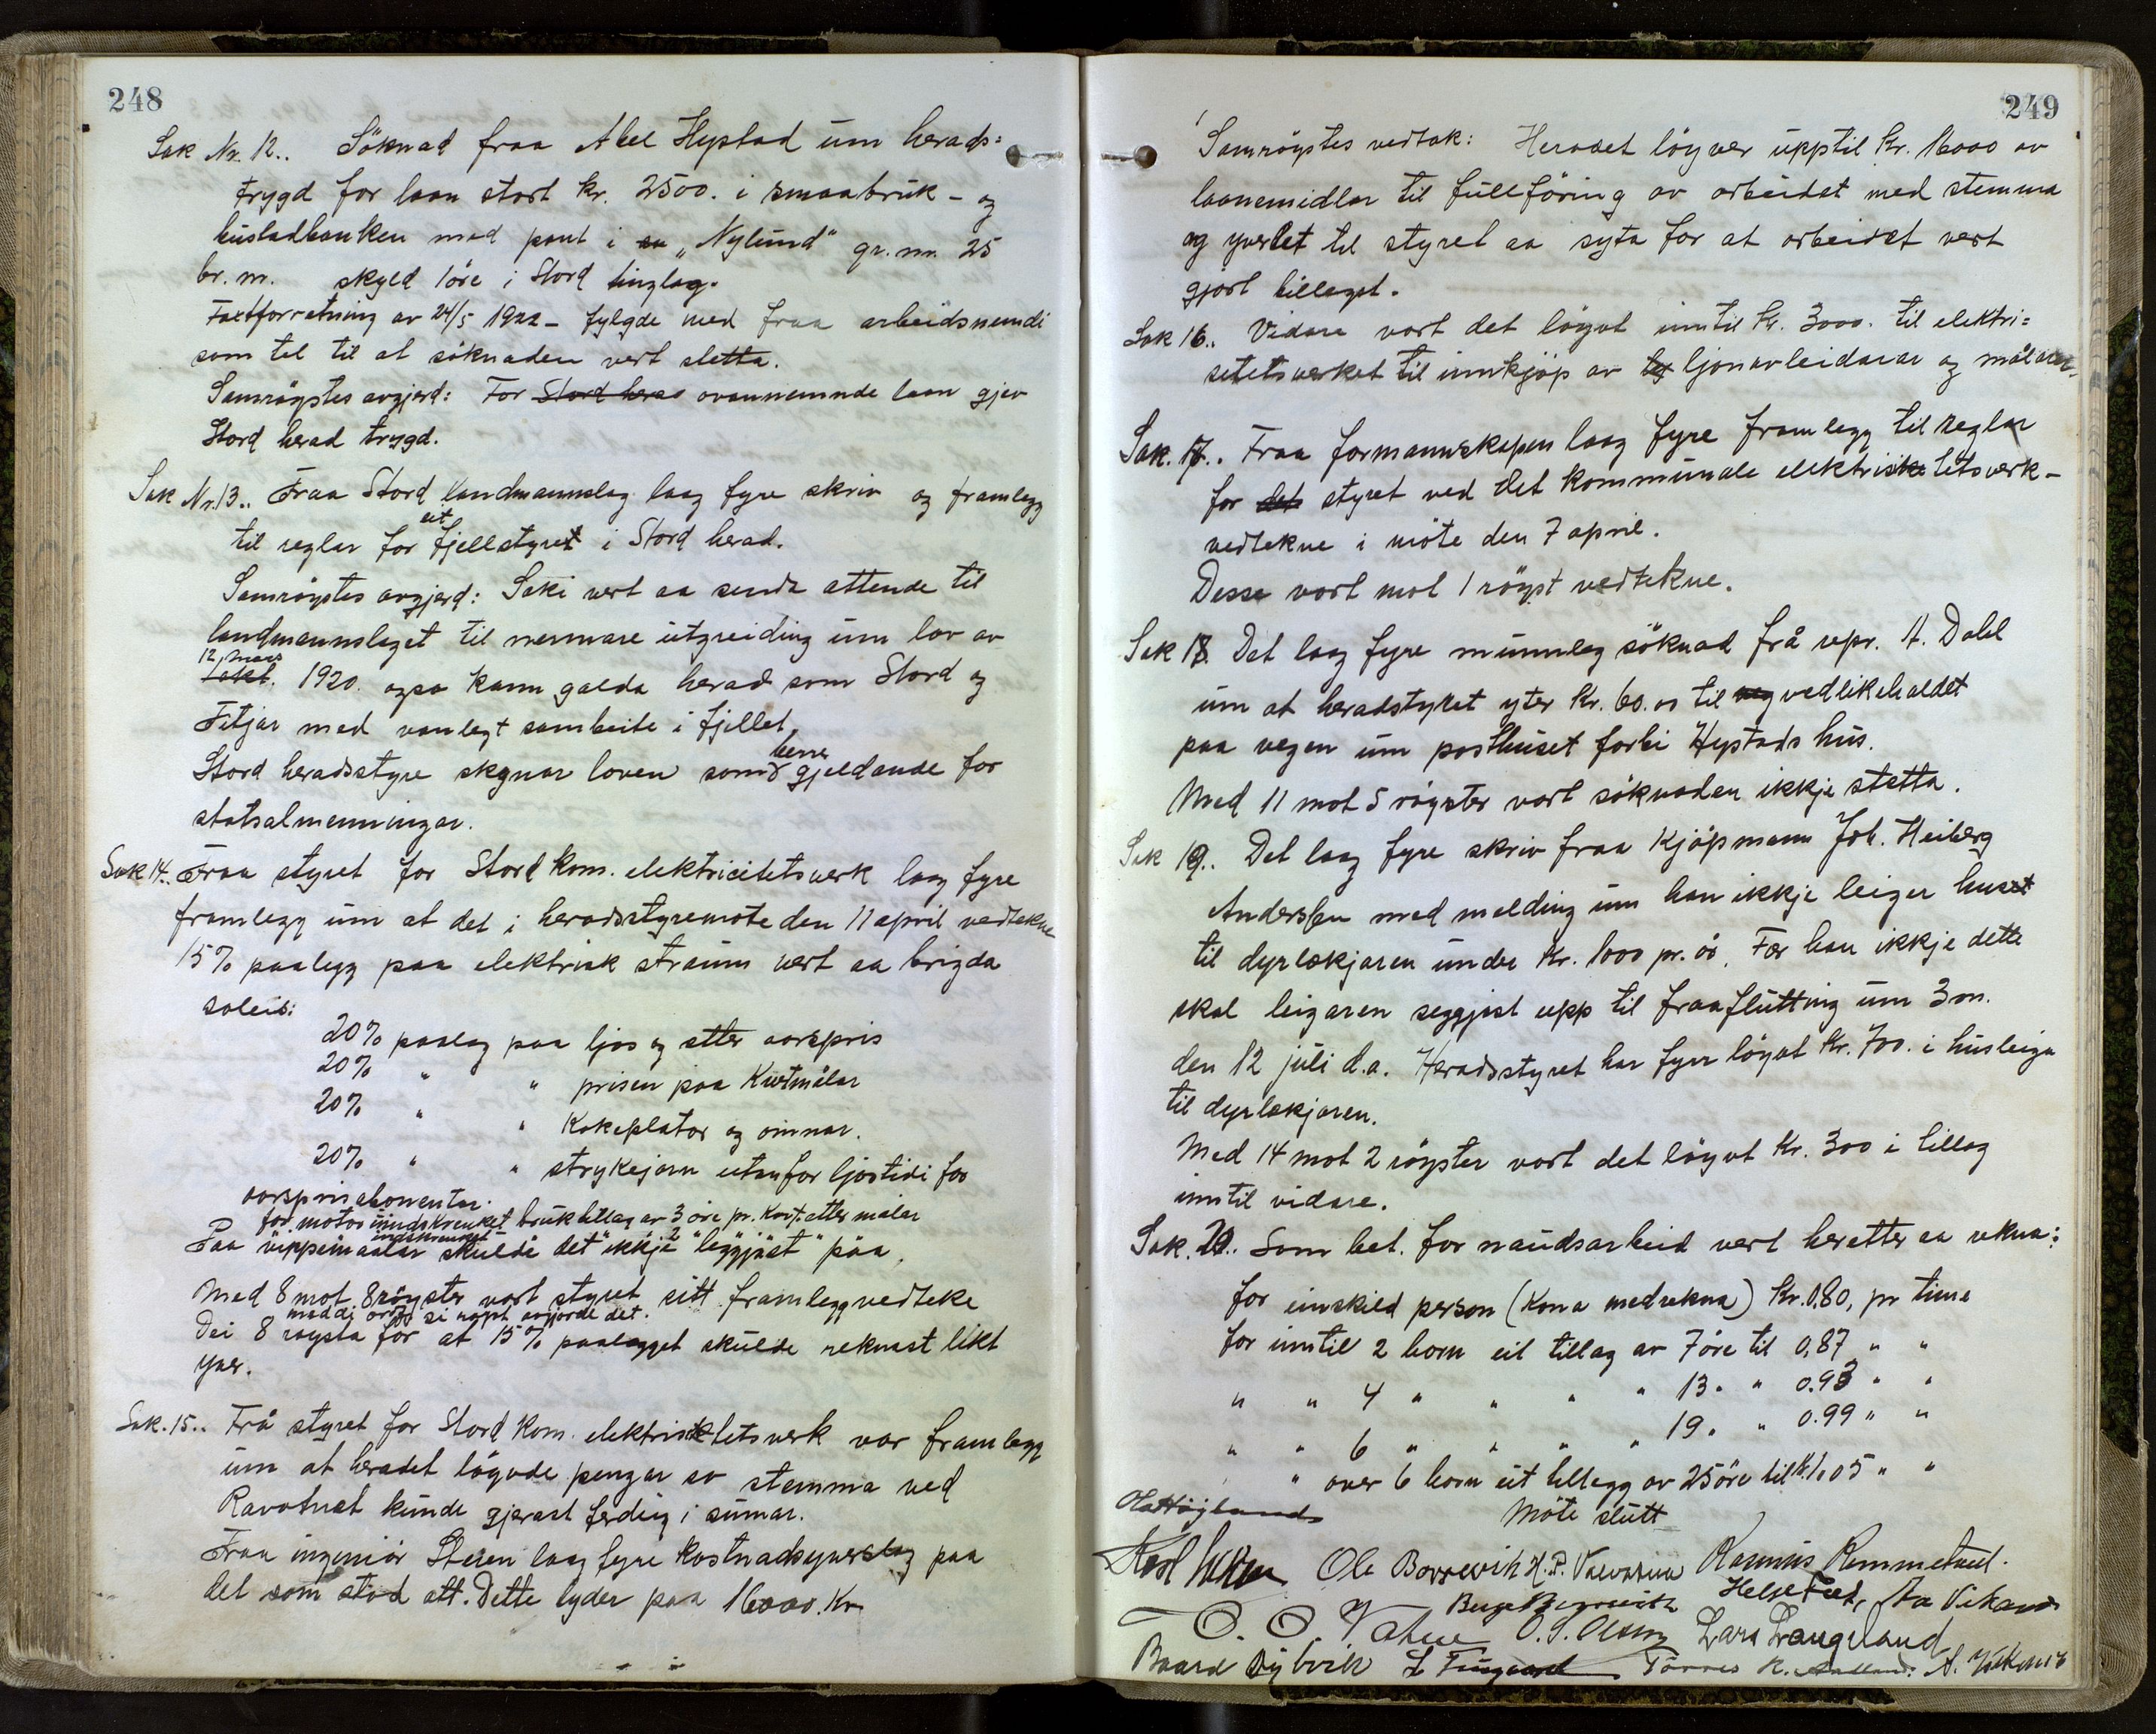 248
Sak Nr. 12.. Söknad fraa Abel Hystad um herads=
trygd for laan stort kr. 2500. i smaabruk- og
bustadbanken med pant i "Nylund" gr. nr. 25
br. nr. skyld 1 öre i Stord tinglag.
Takstforretning av 24/5 1922 - fylgde med fraa arbeidsnemdi
som tel til at söknaden vert stetta.
Samröystes avgjerd: For Stord herad ovannemnde laan gjev
Stord herad trygd.
Sak Nr. 13.. Fraa Stord landmannslag laag fyre skriv og framlegg
til reglar for eit fjellstyret i Stord herad.
Samröystes avgjerd: Saki vert aa senda attende til
landmannslaget til nermare utgreiding um lov av
12 mars
1 okt. 1920. ogso kann gælda herad som Stord og
Fitjar med vanlegt sambeite i fjellet.
Stord heradsstyre skynar loven som berre gjeldande for
statsalmenningar.
Sak 14.. Fraa styret for Stord kom. elektricitetsverk laag fyre
framlegg um at det i heradsstyremöte den 11 april vedtekne
15% paalegg paa elektrisk straum vert aa brigda
soleis:
20% paalag paa ljos og etter aarspris
20% " " prisen paa Kwtmålar
20% " " Kokeplator og omnar.
20% " " strykejarn utanfor ljostidi for
aarsprisabonentar.
for motor uindskrenket bruk tillag av 3 öre pr. Kwt. etter målar
indskrenket " " 2 " " "
Paa vippemaalar skulde det ikkje leggjast paa.
Med 8 mot 8 röyster vart styret sitt framlegg vedteke
med di ordf. si röyst avgjorde det.
Dei 8 röysta for at 15% paalegget skulde reknast likt
yver.
Sak. 15.. Frå styret for Stord kom. elektrisitetsverk var framlegg
um at heradet löyvde pengar so stemma ved
Ravatnet kunde gjerast ferdig i sumar.
Fraa ingeniör Steen laag fyre kostnadsyverslag paa
det som stod att. Dette lyder paa 16000. Kr
249
Samröystes vedtak: Heradet löyver upptil Kr. 16000 av
laanemidlar til fullföring av arbeidet med stemma
og yverlet til styret aa syta for at arbeidet vert
gjort billegst.
Sak 16.. Vidare vart det löyvt inntil Kr. 3000. til elektri=
sitetsverket til innkjöp av lys ljonavleidarar og målarar.
Sak. 17.. Fraa formannskapen laag fyre framlegg til reglar
for det styret ved det kommunale elektrisitetsverk -
vedtekne i möte den 7 april.
Desse vart mot 1 röyst vedtekne.
Sak 18. Det laag fyre munnleg söknad frå repr. A. Dahl
um at heradstyret yter Kr. 60.00 til veg vedlikehaldet
paa vegen um posthuset forbi Hystads hus.
Med 11 mot 5 röyster vart söknaden ikkje stetta.
Sak 19.. Det laag fyre skriv fraa Kjöpmann Joh. Heiberg
Andersen med melding um han ikkje leiger huset
til dyrlækjaren under Kr. 1000 pr. år. Fær han ikkje dette
skal leigaren seggjast upp til fraaflutting um 3 m.
den 12 juli d.a. Heradsstyret har fyrr löyvt Kr. 700. i husleiga
til dyrlækjaren.
Med 14 mot 2 röyster vart det löyvt Kr. 300 i tillag
inntil vidare.
Sak. 20.. Som bet. for naudsarbeid vert heretter aa rekna:
for einskild person (Kona medrekna) Kr. 0,80, pr time
for inntil 2 born eit tillag av 7 öre til 0,87 " "
" " 4 " " " " 13 " " 0.93 " "
" " 6 " " " " 19 " " 0.99 " "
" over 6 born eit tillegg av 25 öre til Kr. 1.05 " "
Möte slutt
Ola Höyland
Ole Borrevik H. P. Valvatna Rasmus Rommetveit.
Berge Borrevik Helge Tveit, Aa Vikanes
O. O. Vatne O. S. Olsen Lars Langeland
Baard Dybvik L Tveegaard Torres K. Aadland. A.